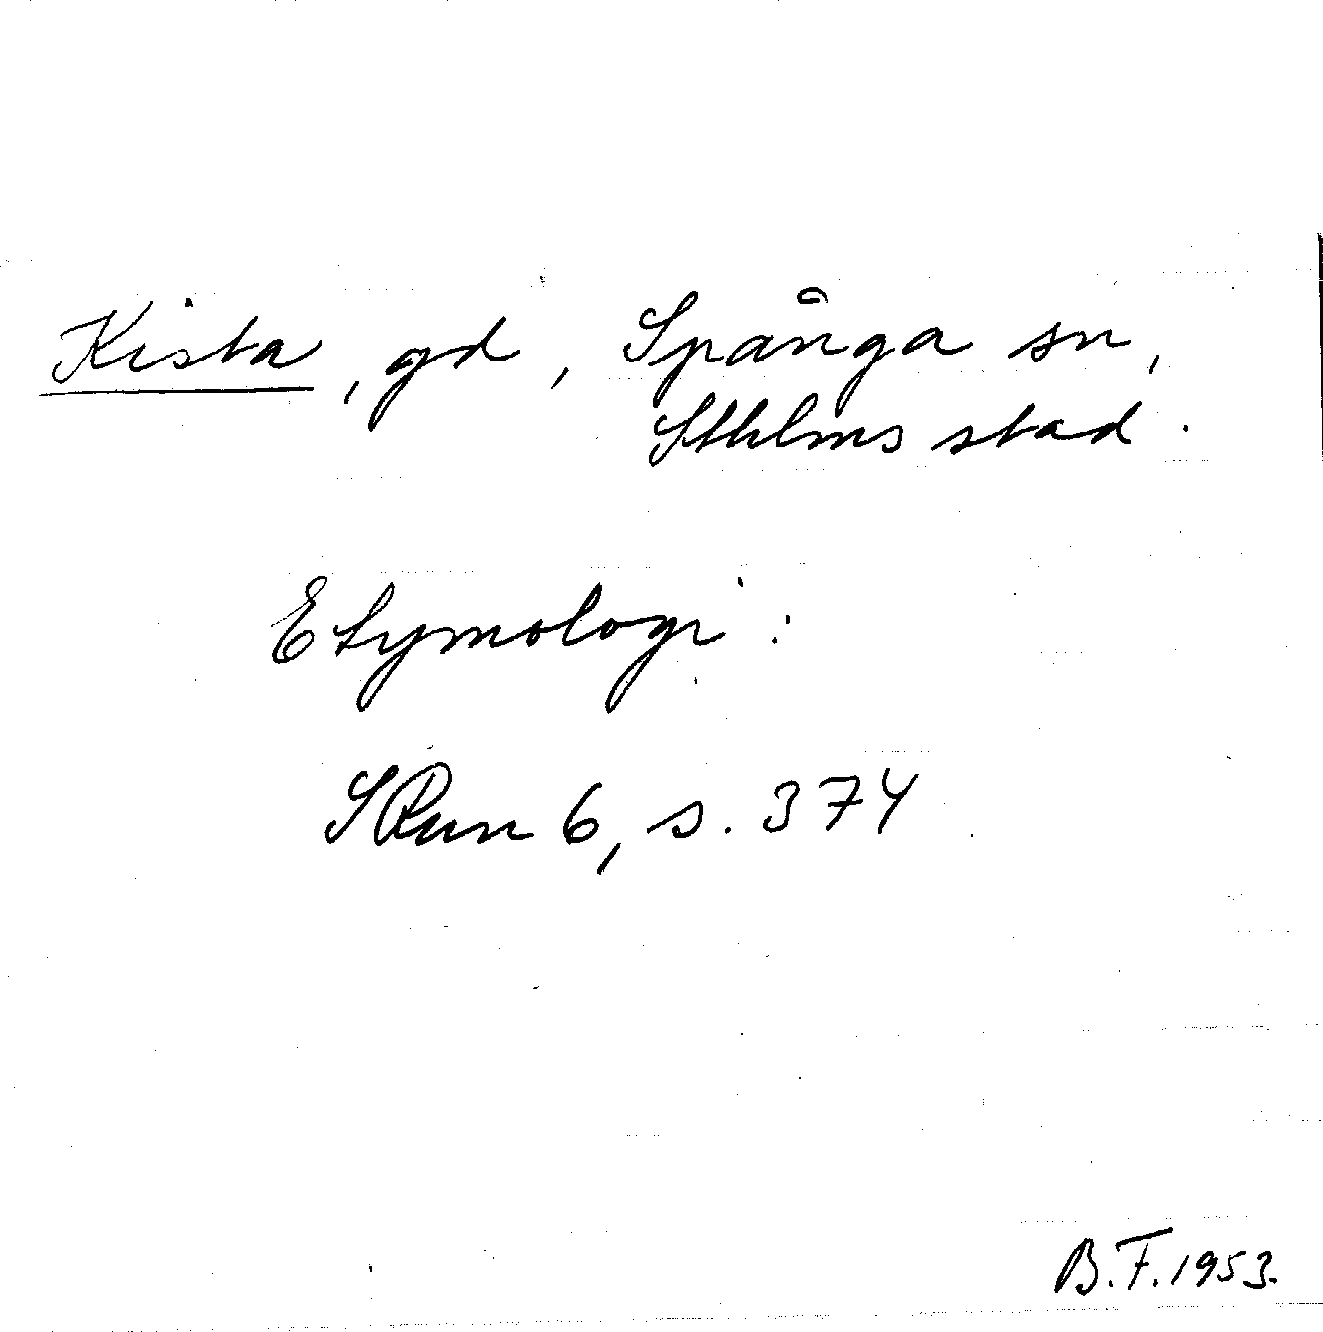 Kista, gd, Spånga sn,
Sthlms stad.
Etymologi:
SRun 6, s. 374
B.F. 1953.